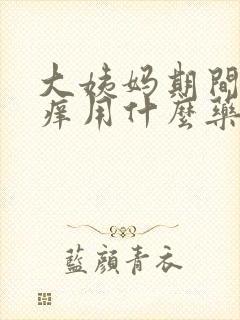 大姨妈期間
痒用什麼藥
藍顔青衣